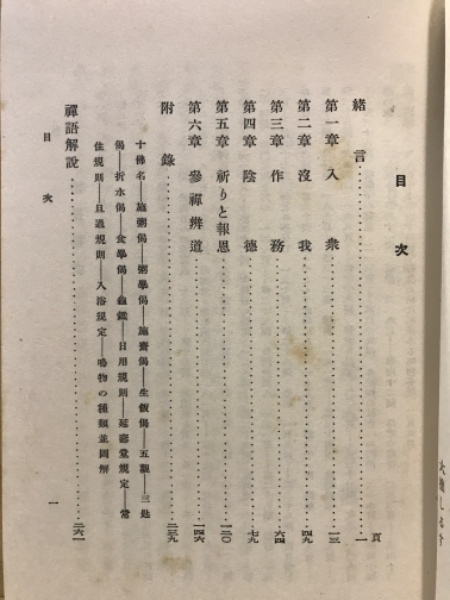 目次
頁
緒言……一
第一章 入衆……一三
第二章 沒我……四九
第三章 作務……六四
第四章 陰德……七九
第五章 祈りと報恩……一二〇
第六章 參禪辨道……一四六
附錄……二三九
十佛名——施粥偈——粥學偈——施齋偈——生飯偈——五觀——三匙
偈——折水偈——食學偈——日用規則——延壽堂規定——常
住規則——旦過規則——入浴規定——鳴物の種類並圖解
禪語解說……二六一
目次
一